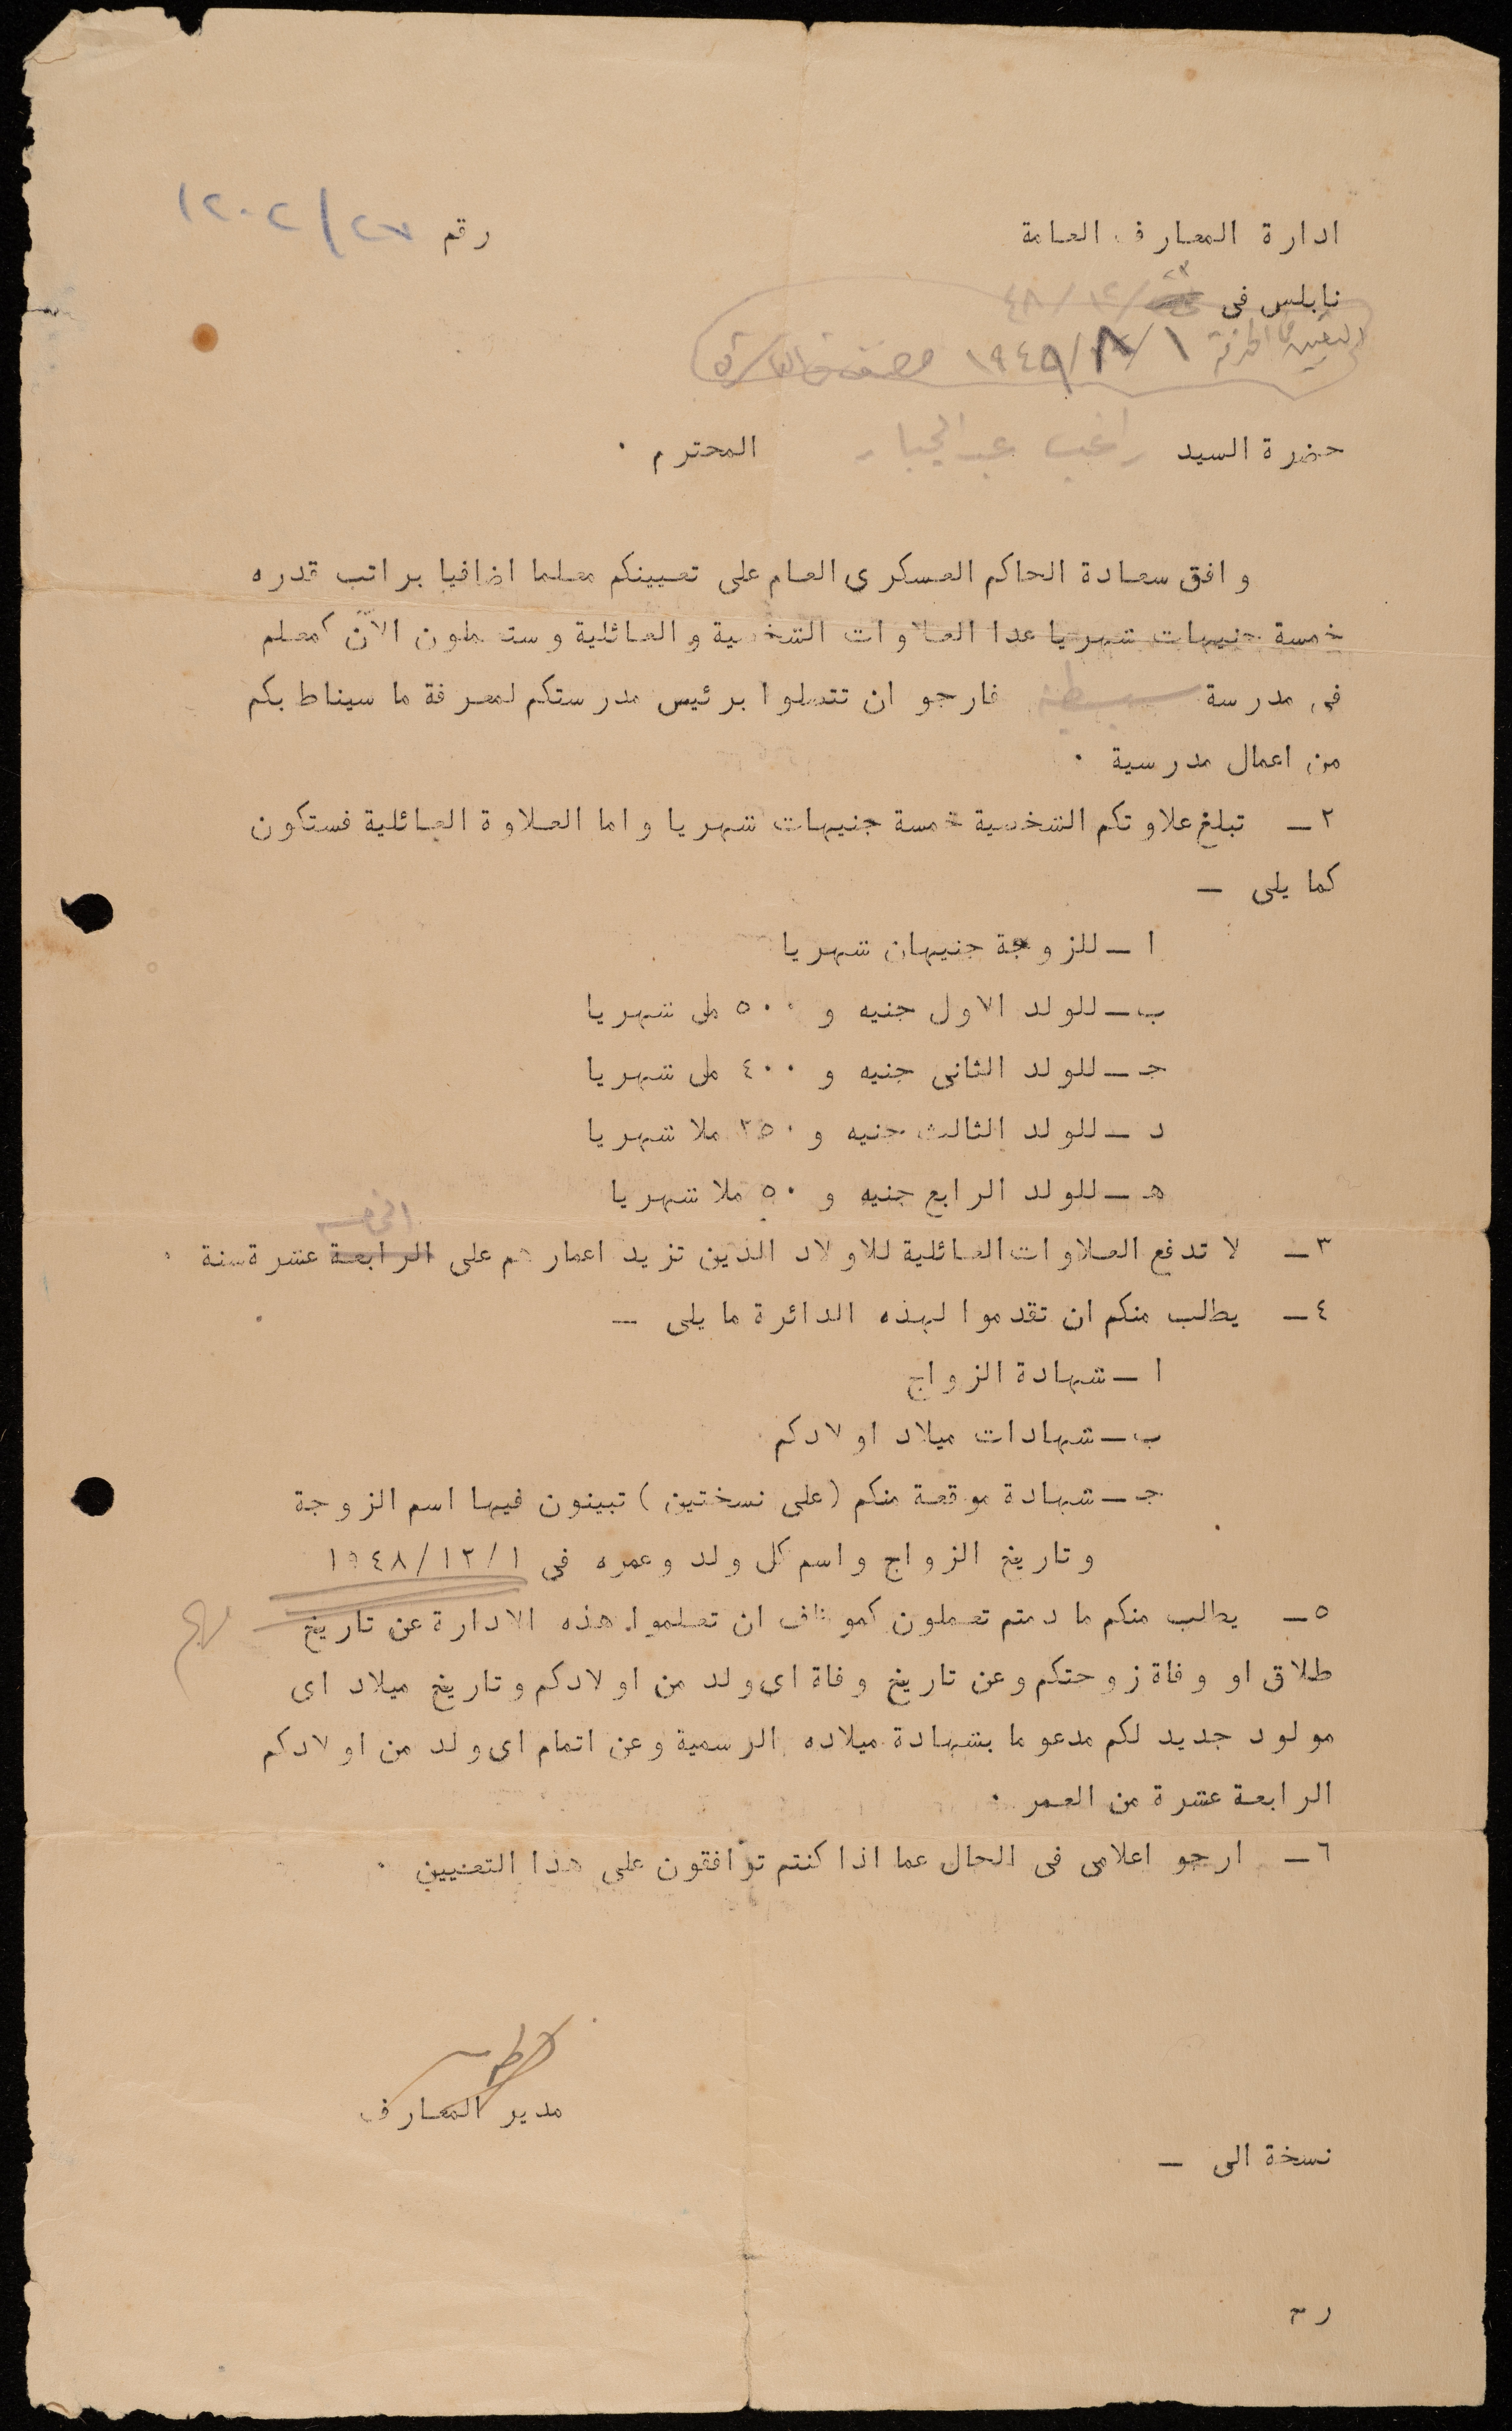 ادارة المعارف العامة
رقم ٢٧/١٢٠٢
نابلس فى ٢٣/١٢/٤٨
التعيين في الخدمة ١/٨/١٩٤٨
حضرة السيد راغب عبد الجبار المحترم ٠
وافق سعادة الحاكم العسكرى العام على تعيينكم معلما اضافيا براتب قدره
خمسة جنيهات شهريا عدا العلاوات الشخصية والعائلية وستعملون الآن كمعلم
فى مدرسة سبسطية فارجو ان تتصلوا برئيس مدرستكم لمعرفة ما سيناط بكم
من اعمال مدرسية ٠
٢ـ تبلغ علاوتكم الشخصية خمسة جنيهات شهريا واما العلاوة العائلية فستكون
كما يلى ـ
ا ـ للزوجة جنيهان شهريا
ب ـ للولد الاول جنيه و ٥٠٠ مل شهريا
جـ ـ للولد الثانى جنيه و ٤٠٠ مل شهريا
د ـ للولد الثالث جنيه و ٢٥٠ ملا شهريا
هـ ـ للولد الرابع جنيه و ٥٠ ملا شهريا
٣ـ لا تدفع العلاوات العائلية للاولاد الذين تزيد اعمارهم على الرابعة عشرة سنة ٠
٤ـ يطلب منكم ان تقدموا لهذه الدائرة ما يلى ـ
ا ـ شهادة الزواج
ب ـ شهادات ميلاد اولادكم
جـ ـ شهادة موقعة منكم (على نسختين) تبينون فيها اسم الزوجة
وتاريخ الزواج واسم كل ولد وعمره فى ١/١٢/١٩٤٨
٥ـ يطلب منكم ما دمتم تعملون كموظف ان تعلموا هذه الادارة عن تاريخ
طلاق او وفاة زوجتكم وعن تاريخ وفاة اى ولد من اولادكم وتاريخ ميلاد اى
مولود جديد لكم مدعوما بشهادة ميلاده الرسمية وعن اتمام اى ولد من اولادكم
الرابعة عشرة من العمر ٠
٦ـ ارجو اعلامى فى الحال عما اذا كنتم توافقون على هذا التعنيين ٠
مدير المعارف
نسخة الى ـ